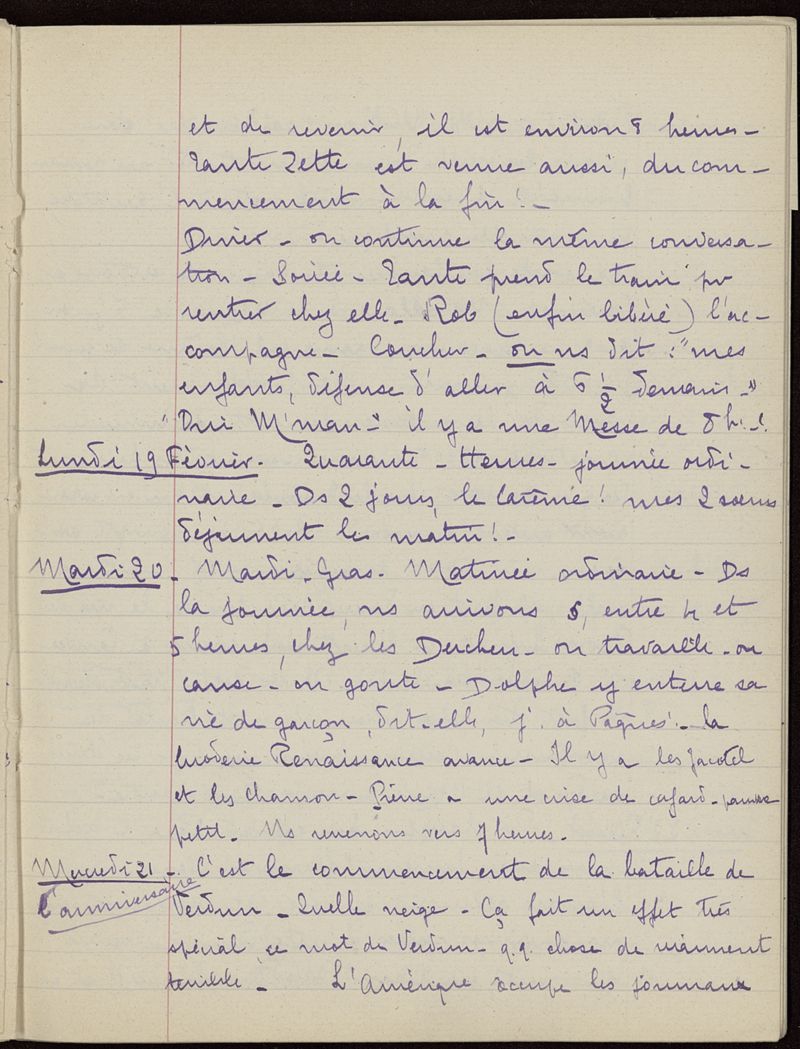 et de revenir, il est environ 8 heures -
Tante Zette est venue aussi, du com-
mencement à la fin ! -
Dîner - on continue la même conversa-
tion - Soirée - Tante prend le train pr
rentrer chez elle - Rob (enfin libéré) l'ac-
compagne - Coucher - on ns dit : "mes
enfants, défense d'aller à 6 1/2 demain -"
"Oui M'man -" il y a une Messe de 8h. - !
Lundi 19 Février. Quarante - Heures - journée ordi-
naire - Ds 2 jours, le Carême ! mes 2 sœurs
déjeunent les matin ! -
Mardi 20 - Mardi - Gras - Matinée ordinaire - Ds
la journée, ns arrivons 5, entre 4 et
5 heures, chez les - on travaille - on
cause - on goute - Dolphe y enterre sa
vie de garçon, dit-elle, j. à Pâques - la
broderie Renaissance avance - Il y a les Jacotel
et les Chanson - Pierre a une crise de cafard - pauvre
petit - Ns revenons vers 7 heures -
Mercredi 21 - C'est le commencement de la bataille de
l'anniversaire
Verdun - Quelle neige - Ça fait un effet très
spécial, ce mot de Verdun - q.q. chose de vraiment
terrible - L'Amérique occupe les journaux